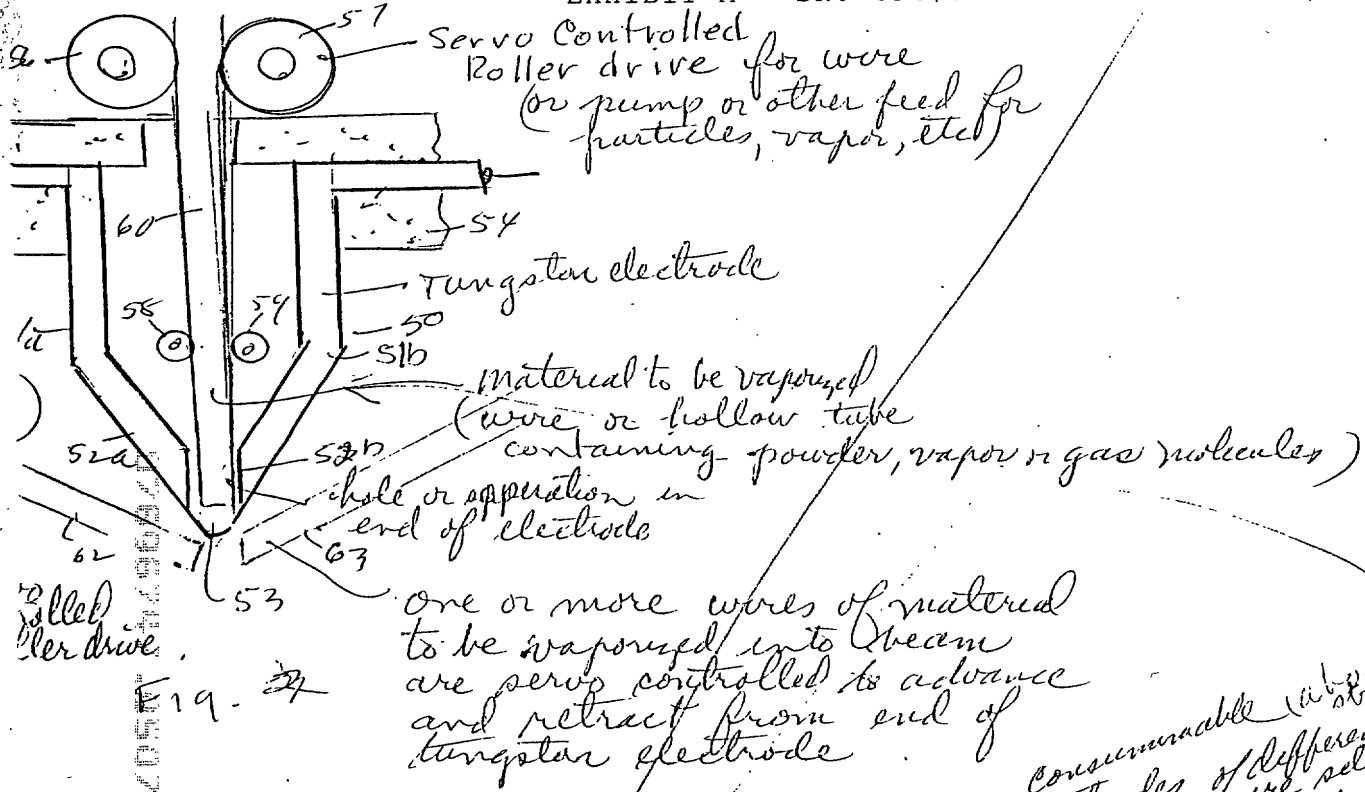 EXHIBIT A
57
Servo Controlled
Roller drive for wire
(or pump or other feed for
particles, vapor, etc)
60
54
Tungstan electrode
58
59
50
51b
material to be vaporized
(wire or hollow tube
containing powder, vapor or gas molecules)
52a
52b
hole or apperation in
end of electrode
62
63
53
olled
ler drive.
one or more wires of material
to be vaporized into beam
are servo controlled to advance
and retract from end of
tungstan electrode
Fig.
consummacable
of different